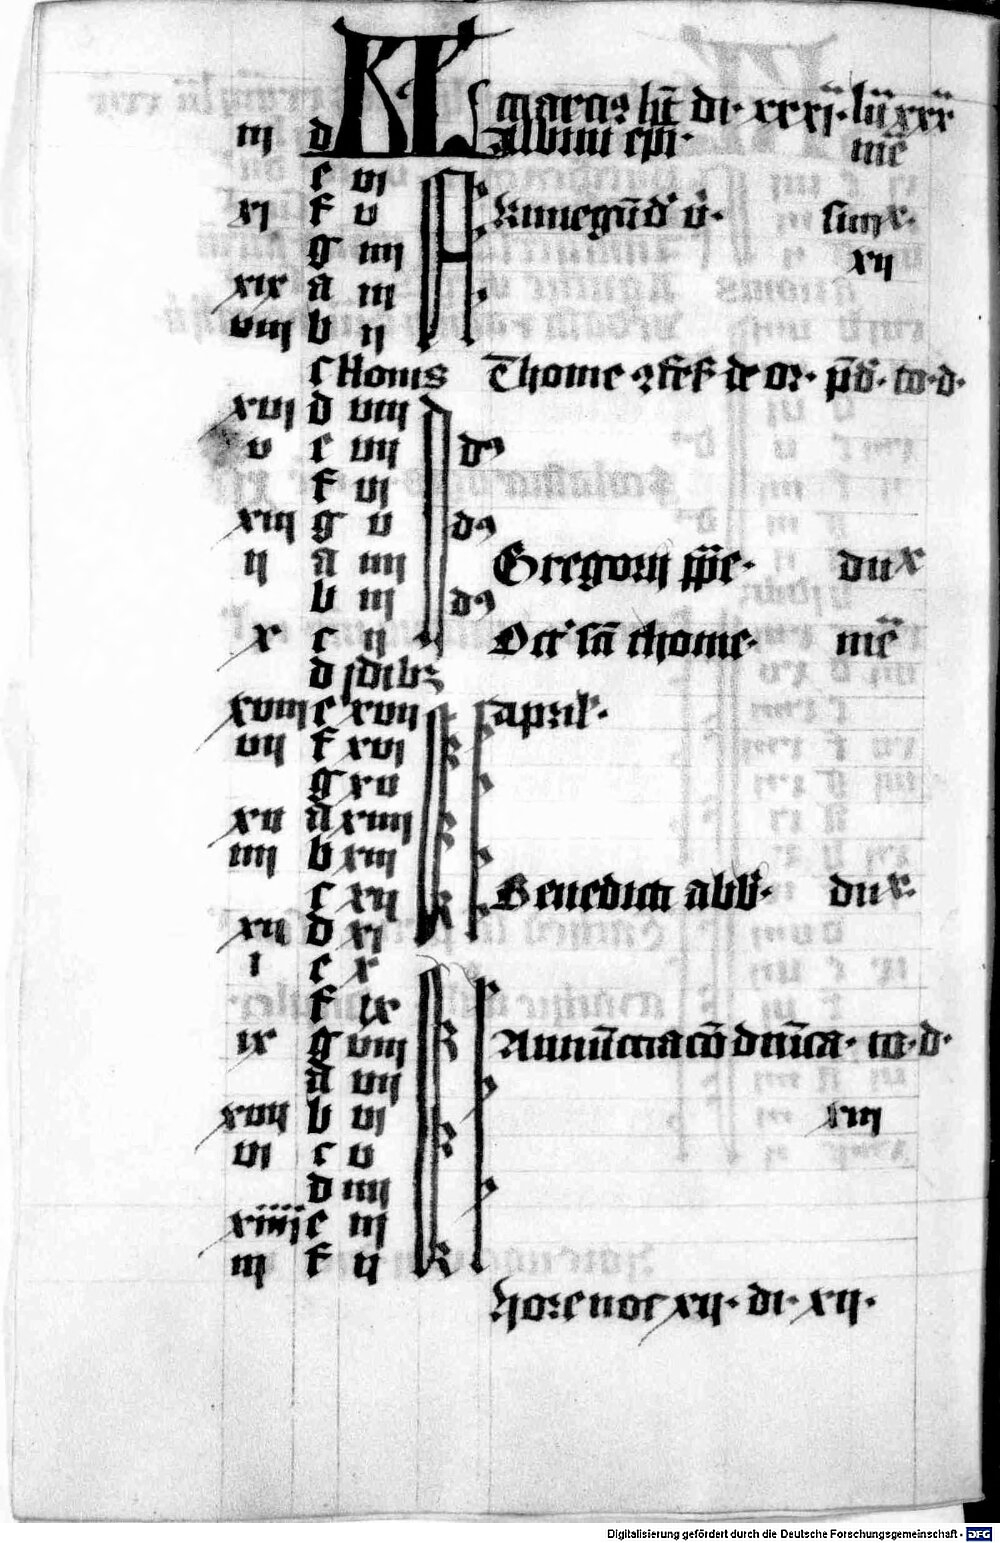 KL marcius ht di· xxxi· lu xxx
iii d Albini epi· me
e vi
xi f v Kunegund v· sim x·
g iiii xii
xix a iii
viii b ii
c Nonis Thome · de or· p · to· d·
xvi d viii
v e vii ds
f vi
xiii g v ds
ii a iiii Gregorii ppe· du x
b iii ds
x c ii Oct sa thome· me
d Idibus
xviii e xvii april·
vii f xvi
g xv
xv a xiiii
iiii b xiii
c xii Benedicti abb· du x·
xii d xi
i e x
f ix
ix g viii Annuncciacio dnica· to· d·
a vii
xvii b vi xiii
vi c v
d iiii
xiiii e iii
iii f ii
hore noc xii· di· xii·
Digitalisierung gefördert durch die Deutsche Forschungsgemeinschaft - DFG